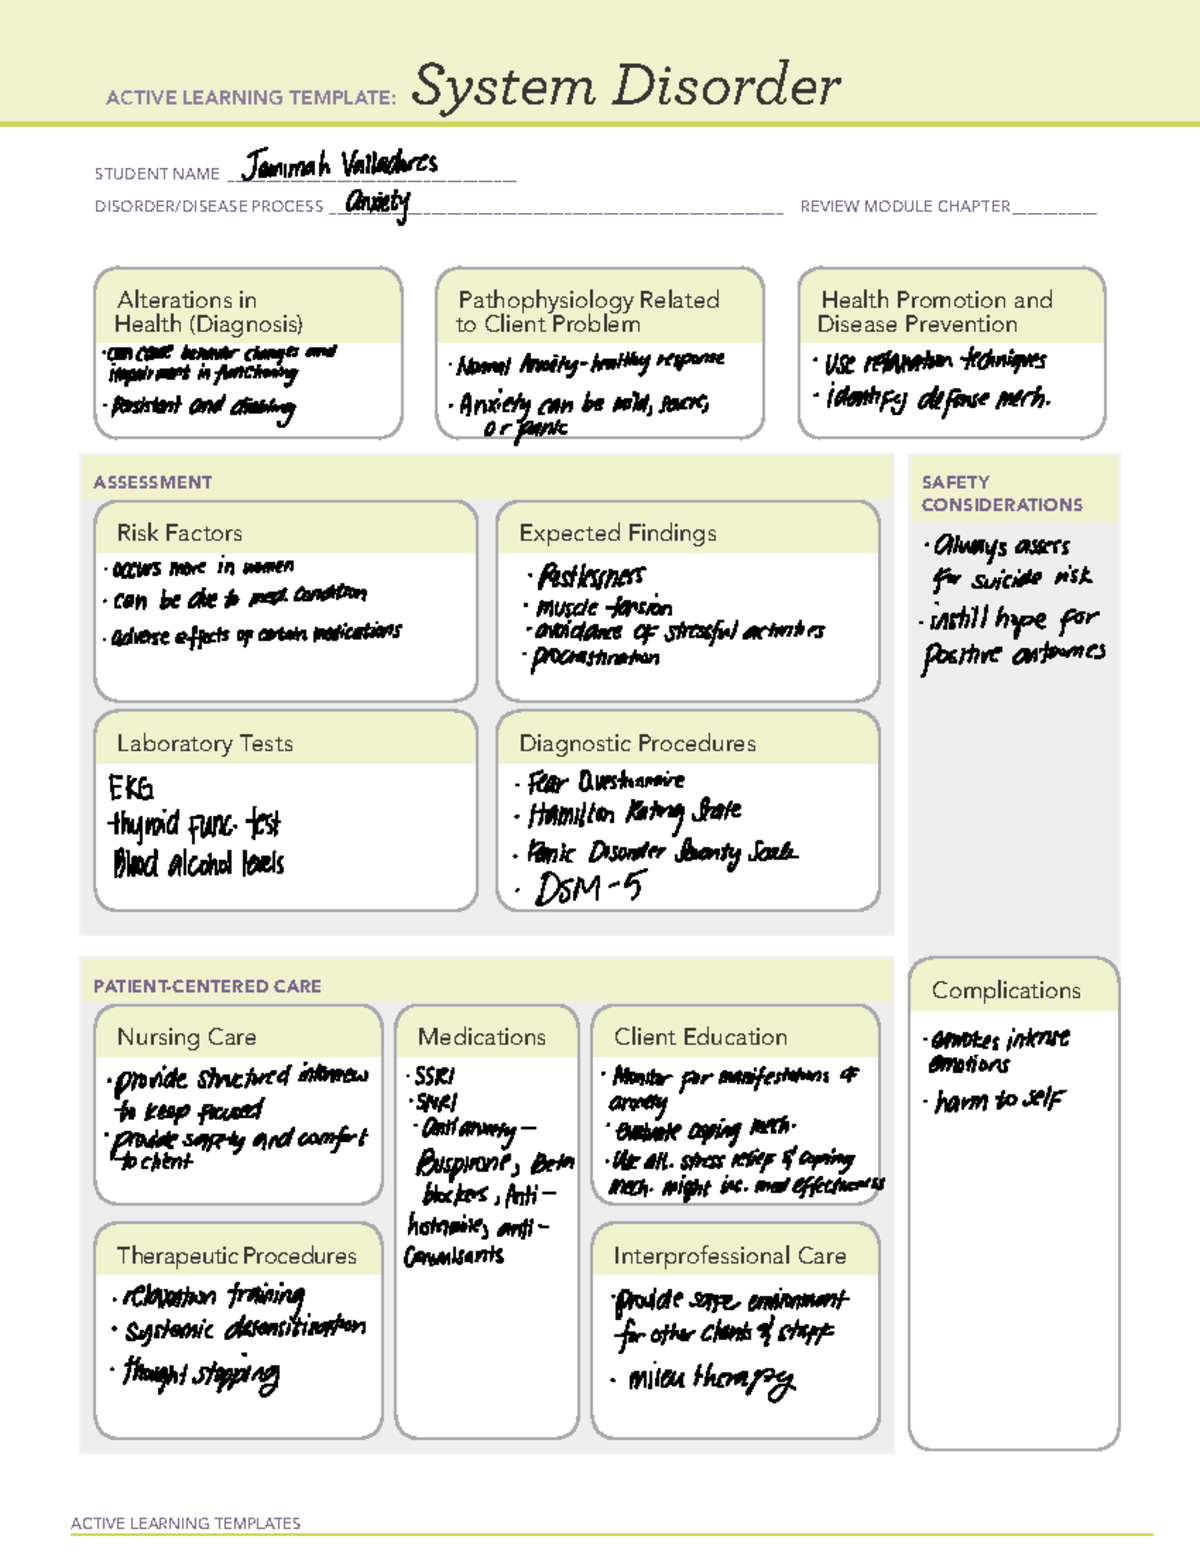 ACTIVE LEARNING TEMPLATE: System Disorder
STUDENT NAME Jamimah Valladares
DISORDER/DISEASE PROCESS Anxiety
REVIEW MODULE CHAPTER
Alterations in
Health (Diagnosis)
· can cause behavior changes and
impairment in functioning
· Persistent and disabling
Pathophysiology Related
to Client Problem
· Normal Anxiety - healthy response
· Anxiety can be mild, severe,
or panic
Health Promotion and
Disease Prevention
· use relaxation techniques
· identify defense mech.
ASSESSMENT
Risk Factors
· occurs more in women
· can be due to med. condition
· adverse effects of certain medications
Expected Findings
· Restlessness
· muscle tension
· avoidance of stressful activities
· procrastination
Laboratory Tests
EKG
thyroid func. test
Blood alcohol levels
Diagnostic Procedures
· Fear Questionnaire
· Hamilton Rating Scale
· Panic Disorder Severity Scale
· DSM-5
SAFETY
CONSIDERATIONS
· Always assess
for suicide risk
· instill hype for
positive outcomes
PATIENT-CENTERED CARE
Nursing Care
· provide structured interview
to keep focused
· provide safety and comfort
to client
Medications
· SSRI
· SNRI
· Anti anxiety -
Buspirone, Beta
blockers, Anti-
histamine, anti-
Convulsants
Client Education
· Monitor for manifestations of
anxiety
· evaluate coping mech.
· Use alt. stress relief & coping
mech. might inc. med effectiveness
Therapeutic Procedures
· relaxation training
· Systemic desensitization
· Thought stopping
Interprofessional Care
· provide safe environment
for other clients & staff
· milieu therapy
Complications
· evokes intense
emotions
· harm to self
ACTIVE LEARNING TEMPLATES